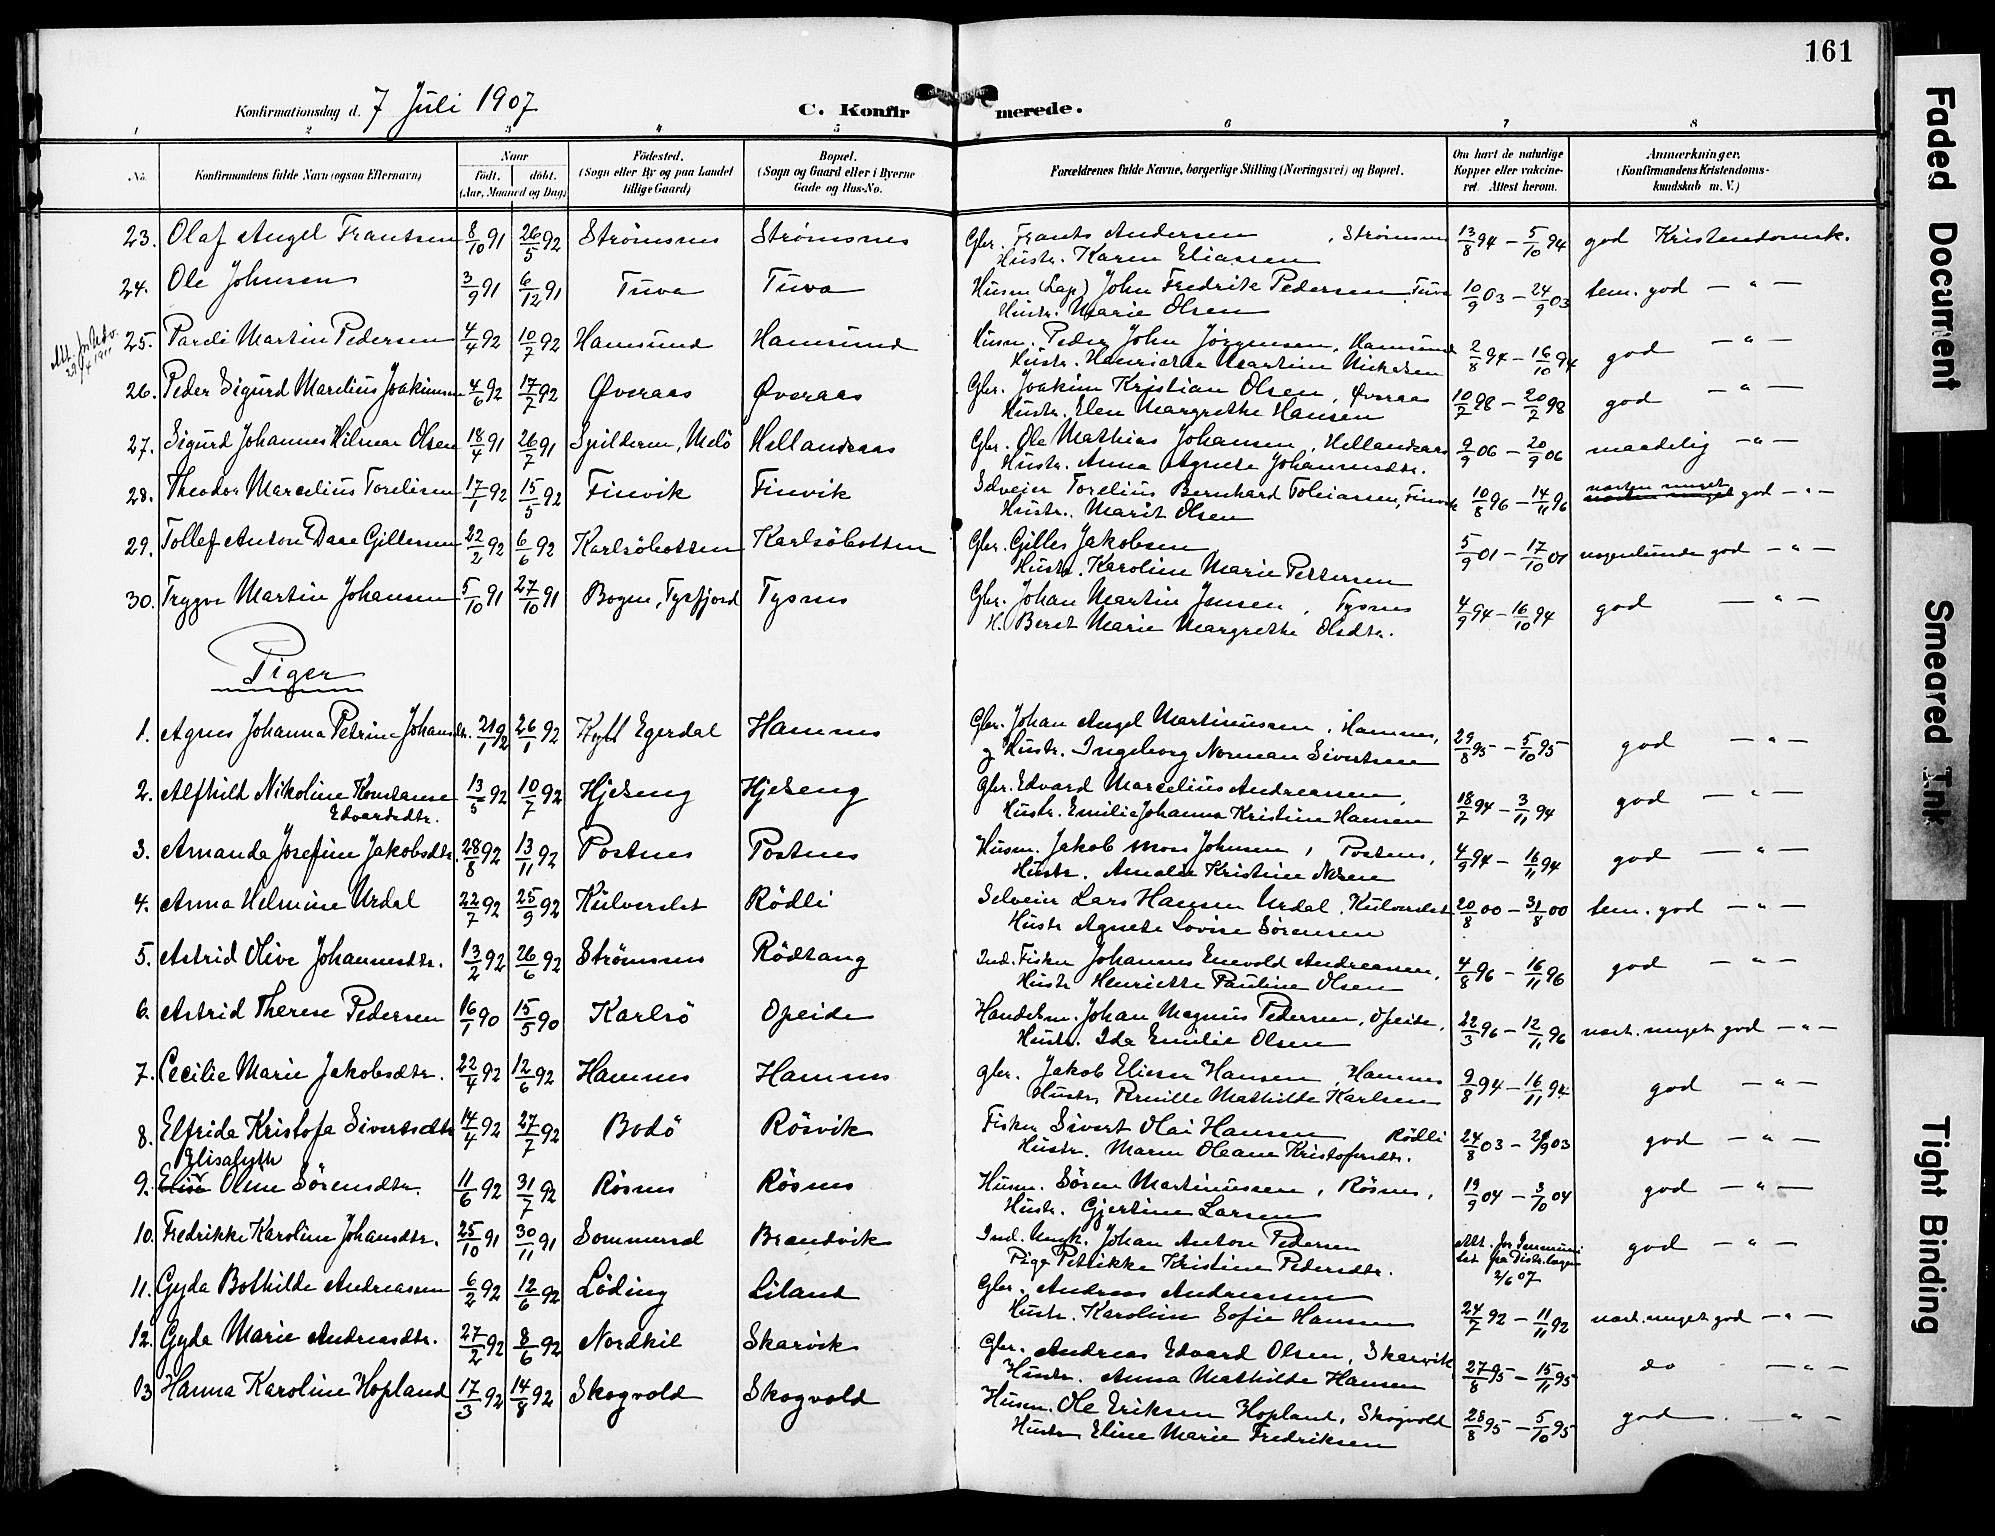 161
Konfirmationsdag d. 7 Juli 1907
C. Konfirmerede.
1 2 3 4 5 6 7 8
No.
Konfirmandens fulde Navn (ogsaa Efternavn)
Naar
födt. döbt.
(Aar, Maaned og Dag)
Födested.
(Sogn eller By og paa Landet
tillige Gaard)
Bopæl.
(Sogn og Gaard eller i Byerne
Gade og Hus-No.
Forældrenes fulde Navne, borgerlige Stilling (Næringsvei) og Bopæl.
Om havt de naturlige
Kopper eller vakcine-
ret. Attest herom.
Anmærkninger.
(Konfirmandens Kristendoms-
kundskab m. V.)
23. Olaf Angel Frantsen 8/10 91 26/5 92 Strømsnes Strømsnes Gbr. Frants Andersen, Strømsnes 13/8 94 – 5/10 94 god Kristendomsk.
Hustr. Karen Eliassen
24. Ole Johnsen 3/9 91 6/12 91 Tuva Tuva Husm (Lap) John Fredrik Pedersen, Tuva 10/9 03 – 24/9 03 tem. god – " –
Hustr. Marie Olsen
25. Pareli Martin Pedersen 4/4 92 10/7 92 Hamsund Hamsund Husm. Peder John Jørgensen, Hamsund 2/8 94 – 16/10 94 god – " –
Hustr. Henriette Martine Mikelsen
26. Peder Sigurd Marelius Joakimsen 4/6 92 17/7 92 Øveraas Øveraas Gbr. Joakim Kristian Olsen, Øveraas 10/7 98 – 20/7 98 god – " –
Hustr. Elen Margrethe Hansen
27. Sigurd Johannes Hilmar Olsen 18/4 91 26/7 91 Spilderen, Melö Hellandsaas Gbr. Ole Mathias Johansen, Hellandsaas 9/9 06 – 20/9 06 maadelig – " –
Hustr. Anna Agnete Johannesdtr.
28. Theodor Marcelius Torelisen 17/1 92 15/5 92 Finvik Finvik Selveier Torelius Bernhard Toleiasen, Finvik 10/8 96 – 14/11 96 næsten meget god – " –
Hustr. Marit Olsen
29. Tollef Anton Daae Gillesen 22/2 92 6/6 92 Karlsöbotten Karlsöbotten Gbr. Gilles Jakobsen 5/9 01 – 17/10 01 nogenlunde god – " –
Hustr. Karoline Marie Pettersen
30. Trygve Martin Johansen 5/10 91 27/10 91 Bogen, Tysfjord Tysnes Gbr. Johan Martin Jensen, Tysnes 4/9 94 – 16/10 94 god – " –
H. Beret Marie Margrethe Olsdtr.
Piger
1. Agnes Johanna Petrine Johansdtr. 21/1 92 26/1 92 Egerdal Hamnes Gbr. Johan Angel Martinussen, Hamnes, 29/8 95 – 5/10 95 god – " –
g Hustr. Ingeborg Norman Sivertsen
2. Alfhild Nikoline Konstanse 13/5 92 10/7 92 Hjeseng Hjeseng Gbr. Edvard Marselius Andreassen, 18/7 94 – 3/11 94 god – " –
Edvardsdtr. Hustr. Emilie Johanna Kristine Hansen
3. Amanda Josefine Jakobsdtr. 28/8 92 13/11 92 Postnes Postnes Husm. Jakob Johnsen, Postnes, 4/9 94 – 16/11 94 god – " –
Hustr. Amalie Kristine Nilsen
4. Anna Helmine Urdal 22/7 92 25/9 92 Kulverslet Rödli Selveier Lars Hansen Urdal, Kulverslet 20/8 00 – 31/8 00 tem. god – " –
Hustr Agnete Lovise Sørensen
5. Astrid Olive Johannesdtr. 13/2 92 26/6 92 Strømsnes Rödtang Ind. Fisker Johannes Enevold Andreassen, 4/8 96 – 16/11 96 god – " –
Hustr Henriette Pauline Olsen
6. Astrid Therese Pedersen 16/1 90 15/5 90 Karlsö Opeide Handelsm. Johan Magnus Pedersen, Opeide, 22/3 96 – 12/11 96 næst. meget god – " –
Hustr. Ida Emilie Olsen
7. Cecilie Marie Jakobsdtr. 22/4 92 12/6 92 Hamnes Hamnes gbr. Jakob Elieser Hansen, Hamnes 9/8 94 – 16/11 94 god – " –
Hustr Pernille Mathilde Karlsen
8. Elfride Kristofa Sivertsdtr 14/4 92 27/7 92 Bodö Rösvik Fisker Sivert Olai Hansen Rödli 24/8 03 – 2/9 03 god – " –
Hustr. Maren Oleane Kristofersdtr.
Elisabeth
9. Elise Oline Sörensdtr. 11/6 92 31/7 92 Rösnes Rösnes Husm. Sören Martinussen, Rösnes, 19/9 04 – 3/10 04 god – " –
Hustr. Gjertine Larsen
10. Fredrikke Karoline Johansdtr. 25/10 91 30/11 91 Sommersel Brandvik Ind. Ungk. Johan Anton Pedersen god – " –
Pige Petrikke Kristine Pedersdtr. fra Distr.lægen 2/6 07
11. Gyda Bothilde Andreassen 6/2 92 12/6 92 Löding Liland Gbr. Andreas Andreassen 24/7 92 – 11/11 92 næst. meget god – " –
Hustr. Karoline Sofie Hansen
12. Gyda Marie Andreasdtr. 27/2 92 8/6 92 Nordkil Skarvik Gbr. Andreas Edvard Olsen, Skarvik 27/8 95 – 15/11 95 do – " –
Hustr. Anna Mathilde Hansen
13 Hanna Karoline Hopland 17/3 92 14/8 92 Skogvold Skogvold Husm. Ole Eriksen Hopland, Skogvold 28/8 95 – 5/10 95 god – " –
Hustr Eline Marie Fredriksen
Faded Document
Smeared Ink
Tight Binding